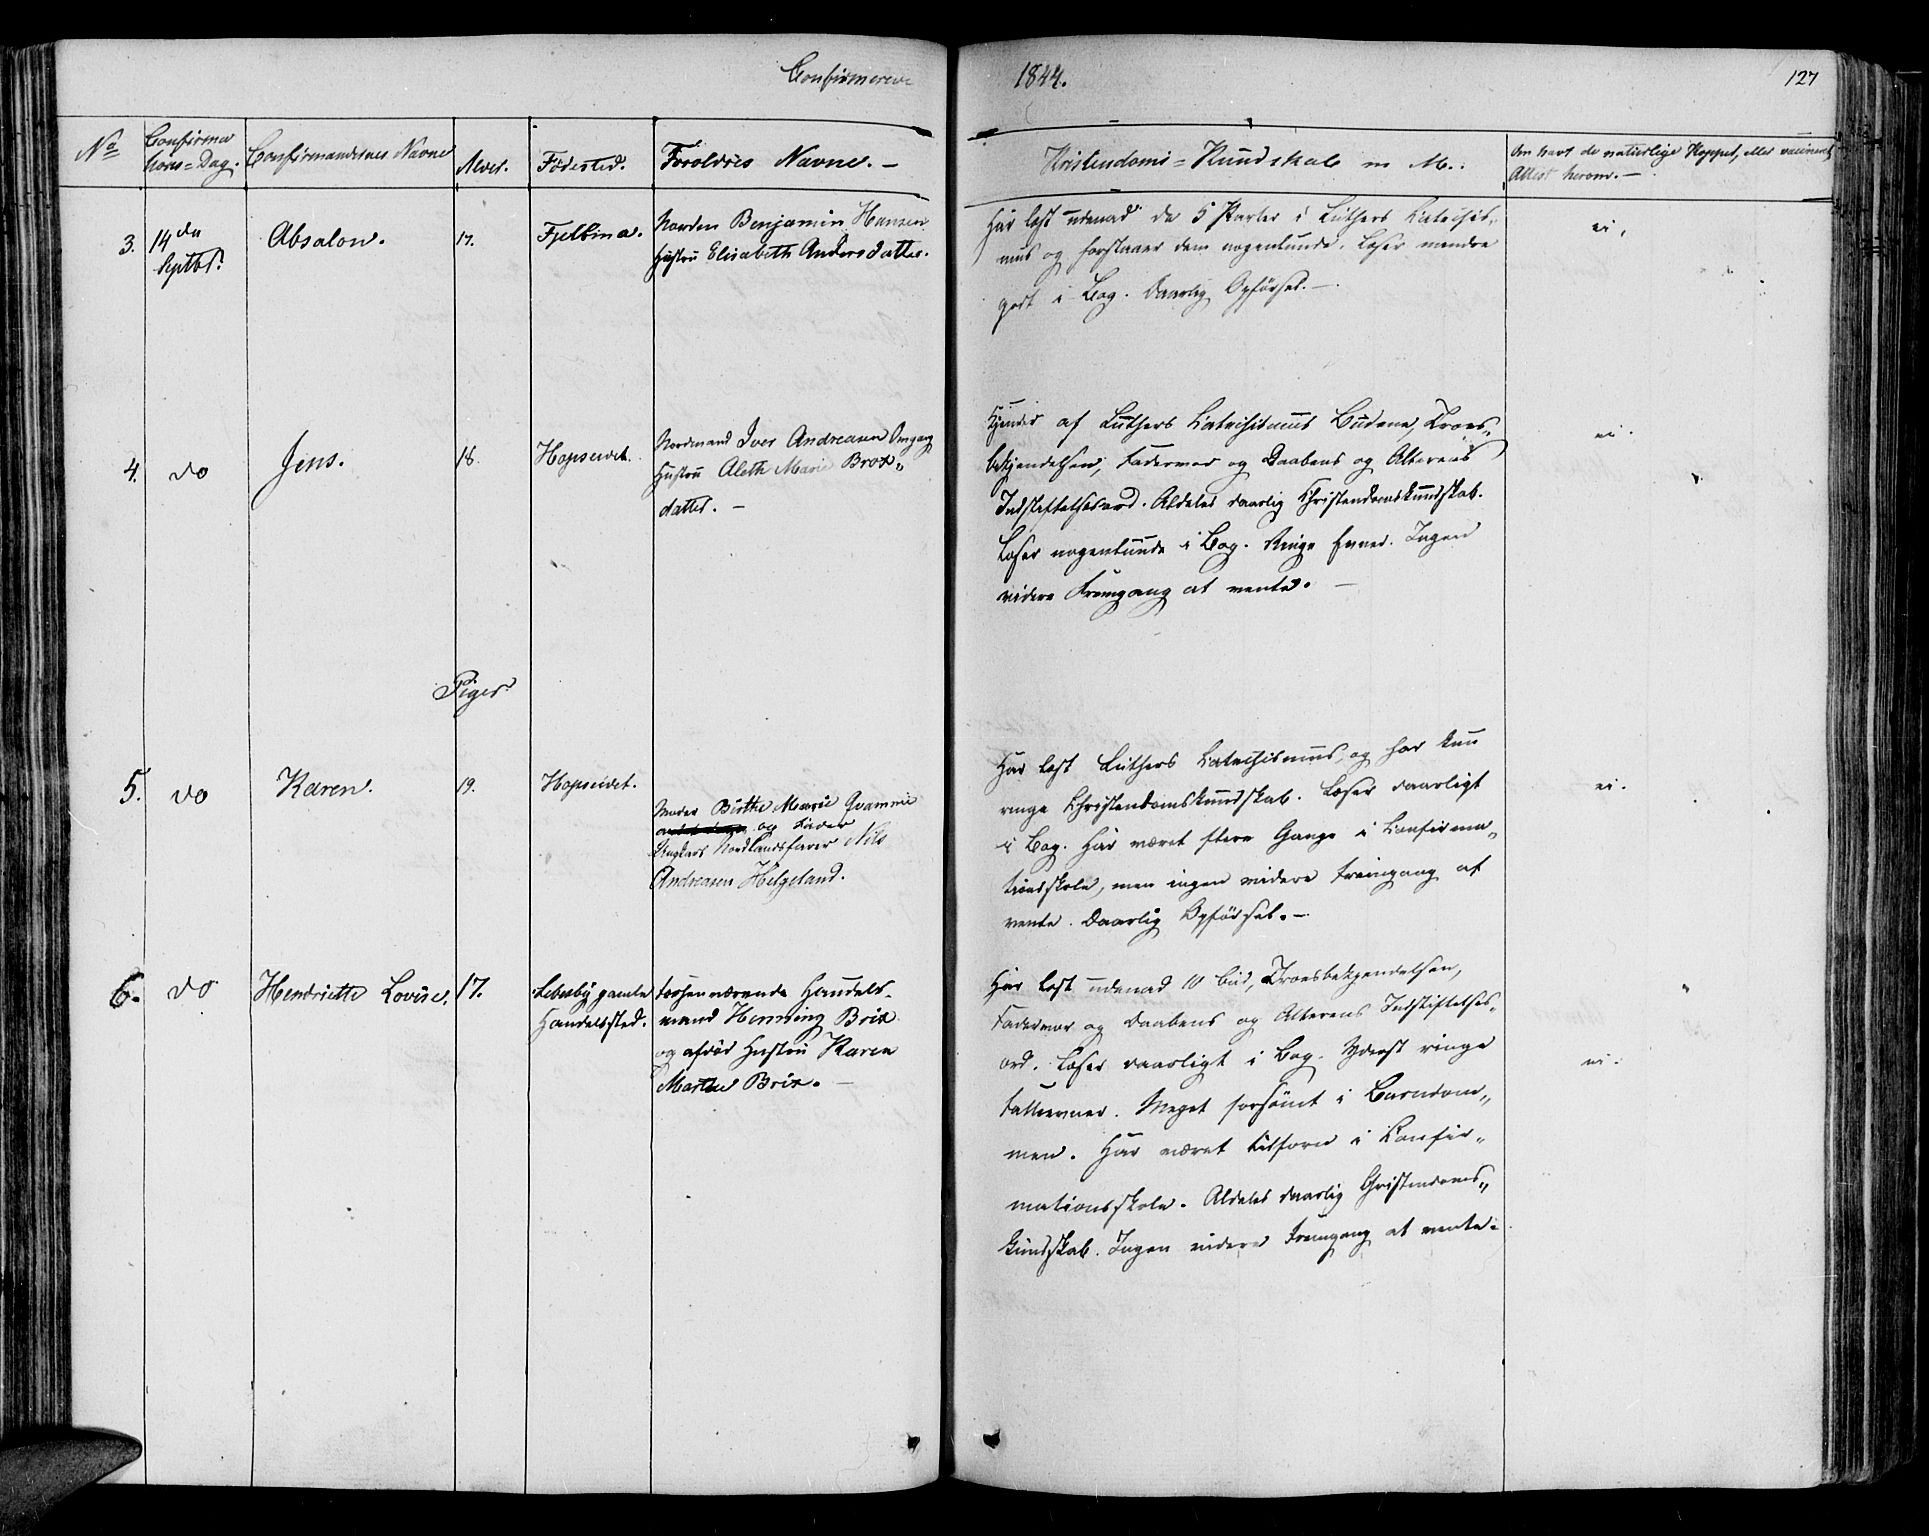 Confirmerede 1844. 127
No
Confirma
tions=Dag.
Confirmandernes Navne
Alder.
Födested.
Foreldres Navne. —
Kristendoms=Kundskab m M.:
Om havt de naturlige Kopper, eller vaccineret,
Attest herom. —
3. 14de
Septbr.
Absalon.
17.
Fjelbma.
Norden Benjamin Hansen
Hustru Elisabeth Andersdatter.
Har lest udenad de 5 Parter i Luthers Catechis-
mus og forstaaer dem nogenlunde. Leser mindre
godt i Bog. Daarlig Opførsel. —
ei.
4. do
Jens.
18.
Hopseidet.
Nordmand Iver Andreasen Omgang
Hustru Aleth Marie Brox„
datter. —
Kjender af Luthers Catechismus Budene, Troes„
bekjendelsen, Fadervor og Daabens og Alterens
Indstiftelsesord. Aldeles daarlig Christendomskundskab.
Leser nogenlunde i Bog. Ringe Evner. Ingen
videre Fremgang at vente. —
ei.
Piger
5. do
Karen.
19.
Hopseidet.
Moder Birthe Marie Qvamme
og Fader
Ungkarl Nordlandsfarer Nils
Andreasen Helgeland.
Har lest Luthers Catechismus, og har kun
ringe Christendomskundskab. Leser daarligt
i Bog. Har været flere Gange i Confirma„
tionsskole, men ingen videre Fremgang at
vente. Daarlig Opførsel. —
ei.
6. do
Henriette Lovise.
17.
Lebesby gamle
Handelssted.
forhenværende Handels-
mand Henning Brix
og afdød Hustru Karen
Marthe Brix. —
Har lest udenad 10 Bud, Troesbekjendelsen,
Fadervor og Daabens og Alterens Indstiftelses„
ord. Leser daarligt i Bog. Yderst ringe
Fatteevner. Meget forsömt i Barndom„
men. Har været tilforn i Confir„
mationsskole. Aldeles daarlig Christendoms„
kundskab. Ingen videre Fremgang at vente.
ei.